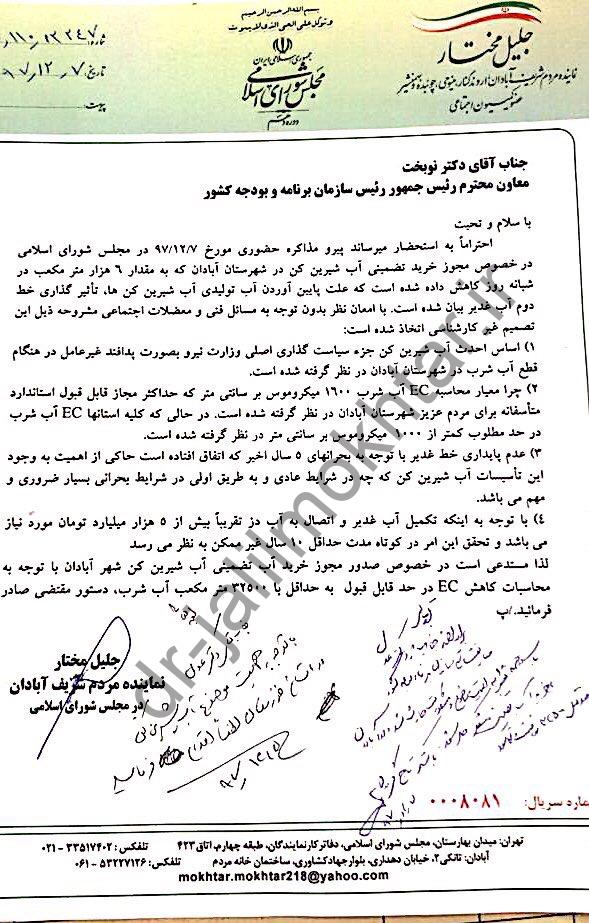 بسم الله الرحمن الرحیم
و توکل علی الحی الذی لا یموت
جمهوری اسلامی ایران
مجلس شورای اسلامی
دوره دهم
جلیل مختار
نماینده مردم شریف آبادان، اروندکنار، مینویی، چوئبده و بهمنشیر
عضو کمیسیون اجتماعی
شماره: ۱۱۰/۱۳۲۴۷
تاریخ: ۹۷/۱۲/۰۷
پیوست:
جناب آقای دکتر نوبخت
معاون محترم رئیس جمهور رئیس سازمان برنامه و بودجه کشور
با سلام و تحیت
احتراماً به استحضار میرساند پیرو مذاکره حضوری مورخ ۹۷/۱۲/۷ در مجلس شورای اسلامی
در خصوص مجوز خرید تضمینی آب شیرین کن در شهرستان آبادان که به مقدار ۶ هزار متر مکعب در
شبانه روز کاهش داده شده است که علت پایین آوردن آب تولیدی آب شیرین کن ها، تأثیر گذاری خط
دوم آب غدیر بیان شده است. با امعان نظر بدون توجه به مسائل فنی و معضلات اجتماعی مشروحه ذیل این
تصمیم غیر کارشناسی اتخاذ شده است:
۱) اساس احدث آب شیرین کن جزء سیاست گذاری اصلی وزارت نیرو بصورت پدافند غیرعامل در هنگام
قطع آب شرب در شهرستان آبادان در نظر گرفته شده است.
۲) چرا معیار محاسبه EC آب شرب ۱۶۰۰ میکروموس بر سانتی متر که حداکثر مجاز قابل قبول استاندارد
متأسفانه برای مردم عزیز شهرستان آبادان در نظر گرفته شده است. در حالی که کلیه استانها EC آب شرب
در حد مطلوب کمتر از ۱۰۰۰ میکروموس بر سانتی متر در نظر گرفته شده است.
۳) عدم پایداری خط غدیر با توجه به بحرانهای ۵ سال اخیر که اتفاق افتاده است حاکی از اهمیت به وجود
این تأسیسات آب شیرین کن که چه در شرایط عادی و به طریق اولی در شرایط بحرانی بسیار ضروری و
مهم می باشد.
۴) با توجه به اینکه تکمیل آب غدیر و اتصال به آب دز تقریباً بیش از ۵ هزار میلیارد تومان مورد نیاز
می باشد و تحقق این امر در کوتاه مدت حداقل ۱۰ سال غیر ممکن به نظر می رسد
لذا مستدعی است در خصوص صدور مجوز خرید آب تضمینی آب شیرین کن شهر آبادان با توجه به
محاسبات کاهش EC در حد قابل قبول به حداقل با ۳۲۵۰۰ متر مکعب آب شرب، دستور مقتضی صادر
فرمائید./پ
جلیل مختار
نماینده مردم شریف آبادان
در مجلس شورای اسلامی
با توجه به اهمیت موضوع آب
لطفاً اقدام
dr-jalilmokhtar.ir
شماره سریال: ۰۰۰۸۰۸۱
تهران: میدان بهارستان، مجلس شورای اسلامی، دفاتر کارنمایندگان، طبقه چهارم، اتاق ۴۲۳ تلفکس: ۳۳۵۱۷۴۰۲ - ۰۲۱
آبادان: تانکی۲، خیابان دهداری، بلوار جهادکشاورزی، ساختمان خانه مردم تلفکس: ۵۳۲۲۷۱۲۶ - ۰۶۱
mokhtar.mokhtar218@yahoo.com